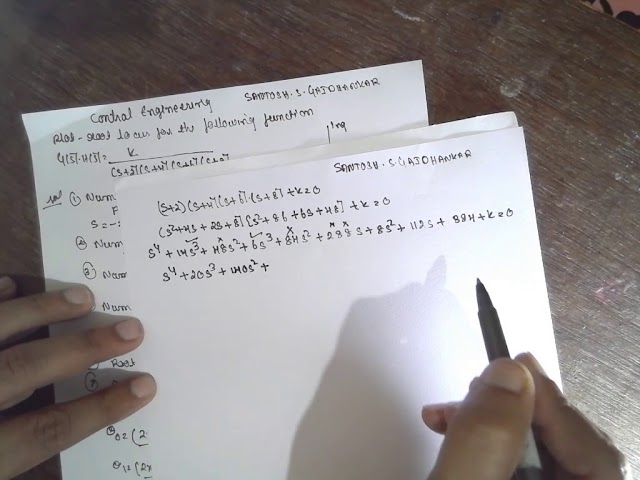 Control Engineering SANTOSH.S.GAJDHANKAR
Plot-Root locus for the following function
G(s).H(s)= K
(s+2)(s+4)(s+6)(s+8)
① Num
S=-
② Num
③ Num
Num
Root
SANTOSH.S.GAJDHANKAR
(s+2)(s+4)(s+6).(s+8)+K=0
(s²+4s+2s+8)[s²+8s+6s+48]+K=0
s⁴+14s³+48s²+6s³+84s²+288s+8s²+112s+384+K=0
s⁴+20s³+140s²+